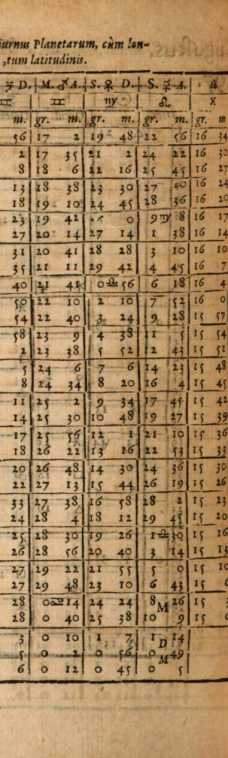 iurnus Planetarum, cùm lon-
,tum latitudinis.
D. M. ♂ A. S. ♀ D. S. ☿ A. ☊
♊ ♍ ♌ ♓
m. gr. m. gr. m. gr. m. gr. m
56 17 2 19 48 22 56 16 34
2 17 35 21 2 24 22 16 30
8 18 6 22 16 25 45 16 27
13 18 38 23 30 27 16 24
18 19 10 24 45 28 36 16 20
23 19 42 0 9 ♍ 8 16 17
27 20 14 27 14 1 38 16 14
31 20 41 28 28 3 10 16 10
35 21 11 29 42 4 45 16 7
40 21 41 0 ♎ 56 6 18 16 4
50 22 10 2 10 7 52 16 0
54 22 40 3 24 9 28 15 57
58 23 9 4 38 1 5 15 54
2 23 38 5 52 12 43 15 51
5 24 6 7 6 14 23 15 48
8 24 34 8 20 16 4 15 45
11 25 2 9 34 17 45 15 42
14 25 30 10 48 19 27 15 39
17 25 56 12 1 21 10 15 36
18 26 22 13 16 22 53 15 33
20 26 48 14 30 24 36 15 30
22 27 13 15 44 26 19 15 26
33 27 38 16 58 28 2 15 23
24 28 4 18 12 29 45 15 20
25 28 30 19 26 1 ♎ 30 15 16
26 28 56 20 40 3 14 15 13
27 29 22 21 55 0 15 10
27 29 48 23 10 6 43 15 6
28 0 ♋ 14 24 24 8 26 15 3
28 0 40 25 38 10 9 15 0
3 0 10 1 7 1 14
5 0 2 0 56 0 49
6 0 12 0 45 0 5